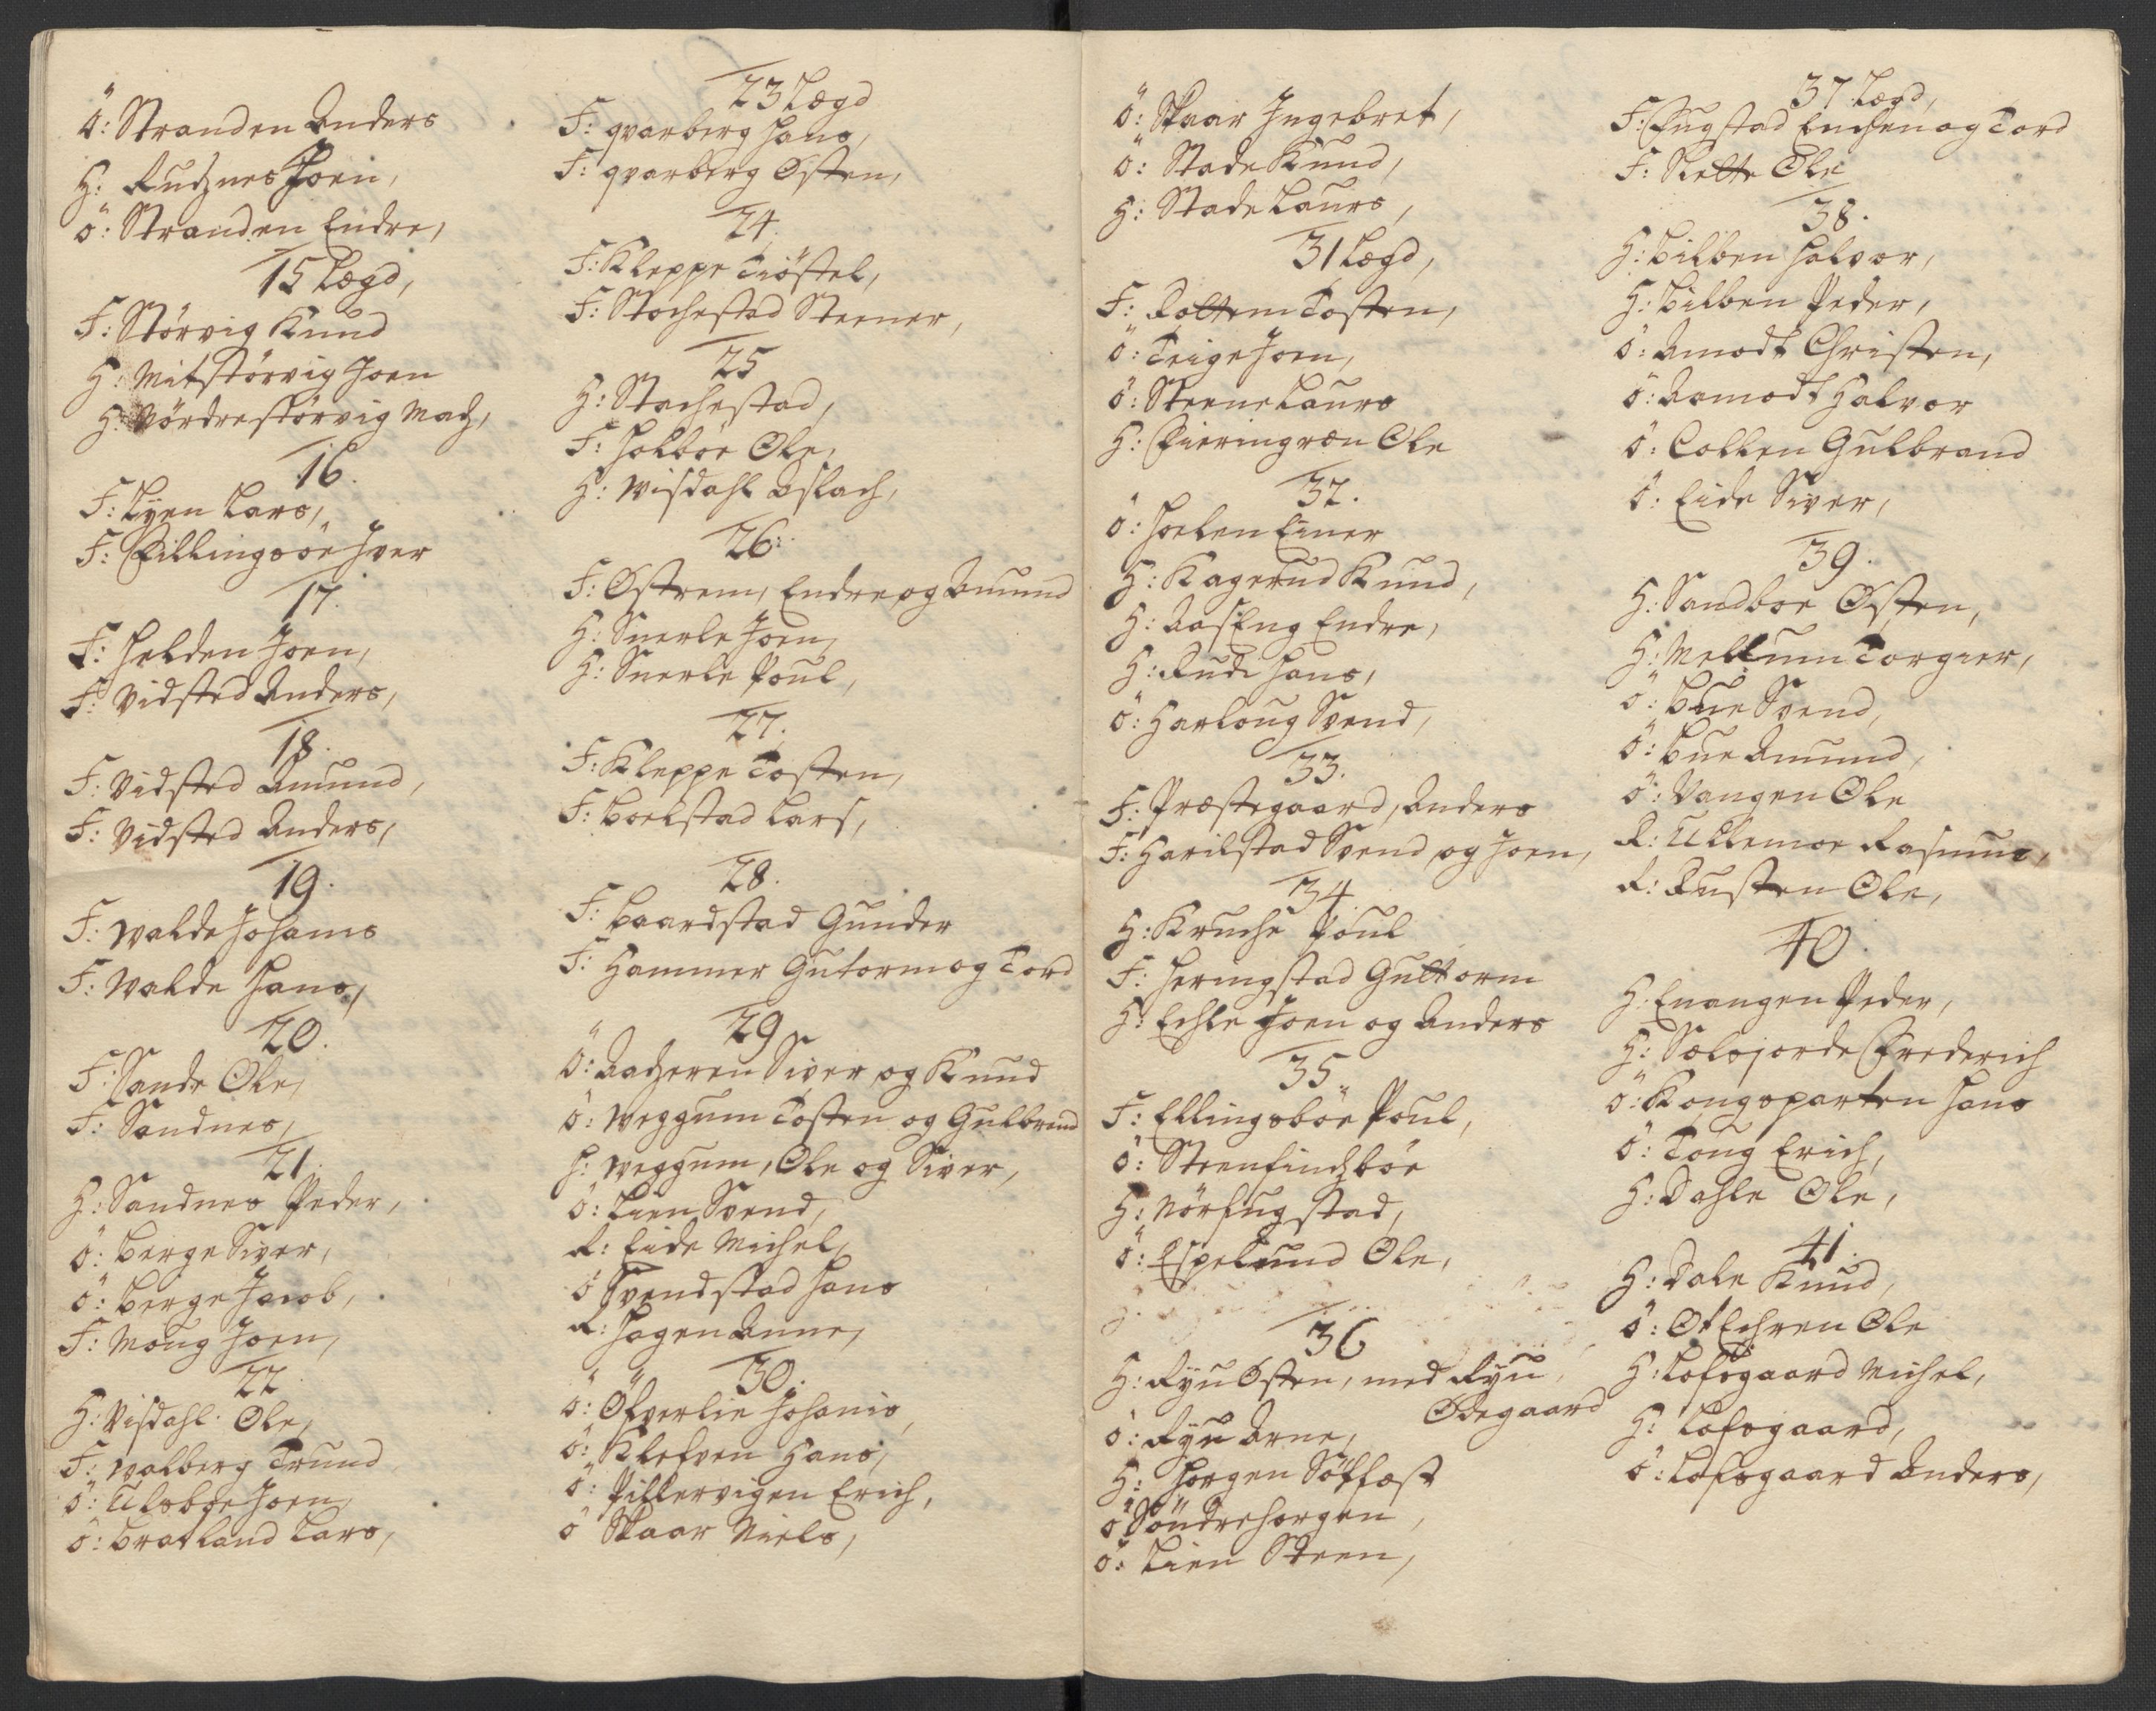 Ö: Stranden Anders
H: Rudznes Joen,
Ö: Stranden Endre,
15 Lægd,
F: Störvig Knud
H: Mitstörvig Joen
H: Nördrestörvig Madz,
16.
F: Lyen Lars,
F: Ffillingsöe Iver
17.
F: Helden Joen,
F: Vidsted Anders,
18.
F: Vidsted Amund,
F: Vidsted Anders,
19.
F: Walde Johanis
F: Walde Hans,
20.
F: Sande Ole,
F: Sandnes,
21.
H: Sandnes Peder,
Ö: Berge Siver,
Ö: Berge Jacob,
F: Moug Joen,
22
H: Visdahl Ole,
F: Walberg Trund
Ö: Ulsboe Joen,
Ö: Bratland Lars,
23 Lægd
F: qvarberg Hans,
F: qvarberg Östen,
24.
F: Kleppe Tiöstel,
F: Stochestad Steener,
25
H: Stachestad,
F: Holböe Ole,
H: Wisdahl Aslach,
26.
F: Östrem, Endre og Amund
H: Snerle Joen,
H: Snerle Poul,
27.
F: Kleppe Tosten,
F: Boelstad Lars,
28.
F: Baardstad Gunder
F: Hammer Gutorm og Tord
29
Ö: Aadzeren Siver og Knud
Ö: Weggum Tosten og Gulbrand
H: Weggum, Ole og Siver,
Ö: Lien Svend,
R: Eide Michel,
Ö Svendstad Hans
R: Hagen Anne,
30.
Ö: Öfverlie Johanis,
Ö: Klefven Hans,
Ö: Pillervigen Erich,
Ö Skaar Niels,
Ö: Skaar Ingebret,
Ö: Stade Knud,
H: Stade Laurs,
31 Lægd,
F: Rottem Tosten,
Ö: Teige Joen,
Ö: Steene Laurs
H: Ffieringræn Ole
32.
Ö: Hoelen Einer
H: Kagerud Knud,
H: Aaseng Endre,
H: Rudi Hans,
Ö: Harloug Svend,
33.
F: Præstegaard, Anders
F: Harilstad Svend og Joen,
34.
H: Kruche Poul
F: Heringstad Guttorm
H: Echle Joen og Anders
35.
F: Ellingsböe Poul,
Ö: Steenfindzböe
H: Nörfugstad,
Ö: Espelund Ole,
36
H: Ryn Östen, med Ryn
Ödegaard
Ö: Ryn Arne,
H: Horgen Söffæst
Ö Söndrehorgen,
Ö: Lien Steen,
37 Lægd,
F: Ffugstad Enchen og Tord
F: Slette Ole
38.
H: Bilben Halvor,
H: Bilben Peder,
Ö: Amodt Christen,
Ö: Aamodt Halvor
Ö: Collen Gulbrand
Ö: Eide Siver,
39.
H: Sandboe Östen,
H: Mellum Torgier,
Ö: Bue Svend,
Ö: Bue Amund,
Ö: Vangen Ole
R: Ullemoe Rasmus,
R: Rusten Ole,
40.
H: Enangen Peder,
H: Solsjorde Ffrederich
Ö: Kongsparten Hans
Ö: Toug Erich,
H: Dahle Ole,
41.
H: Dale Knud,
Ö: Ot Echren Ole
H: Lofsgaard Michel,
H: Lofsgaard,
Ö: Lofsgaard Anders,